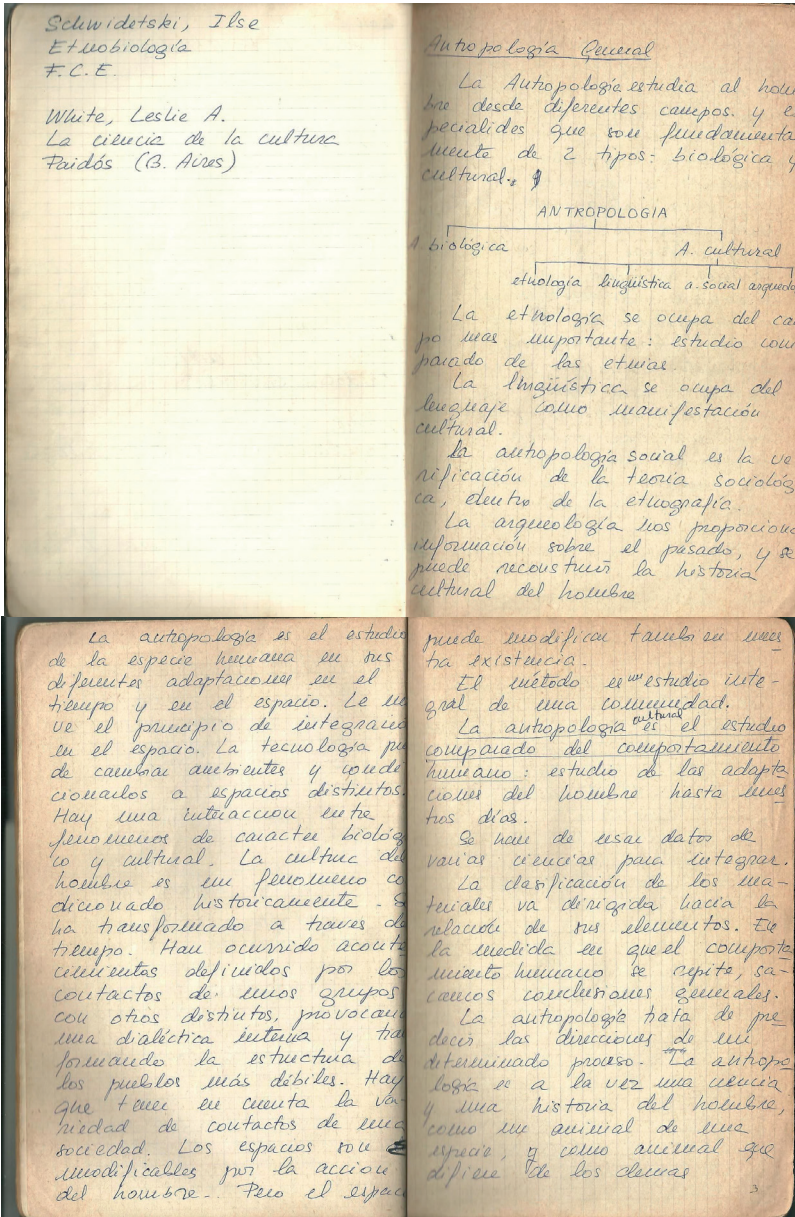 Schwidetski, Ilse
Etnobiología
F.C.E.
White, Leslie A.
La ciencia de la cultura
Paidós (B. Aires)
Antropología General
La Antropología estudia al hom
bre desde diferentes campos. y e
pecialides que son fundamenta
mente de 2 tipos: biológica y
cultural.
ANTROPOLOGIA
A. biológica A. cultural
etnología lingüística a. social arqueolo
La etnología se ocupa del ca
po mas importante: estudio com
parado de las etnias
La lingüística se ocupa del
lenguaje como manifestación
cultural.
La antropología social es la ve
rificación de la teoría sociológ
ca, dentro de la etnografía.
La arqueología nos proporciona
información sobre el pasado, y se
puede reconstruir la historia
cultural del hombre
La antropología es el estudio
de la especie humana en sus
diferentes adaptaciones en el
tiempo y en el espacio. Le mu
ve el principio de integrano
en el espacio. La tecnología pu
de cambiar ambientes y condi
cionarlos a espacios distintos.
Hay una interaccion entre
fenomenos de caracter biológ
co y cultural. La cultura del
hombre es un fenomeno co
dicionado historicamente. S
ha transformado a traves de
tiempo. Han ocurrido aconte
cimientos definidos por los
contactos de unos grupos
con otros distintos, provocan
una dialéctica interna y tra
formando la estructura de
los pueblos más débiles. Hay
que tener en cuenta la va
riedad de contactos de una
sociedad. Los espacios son
modificables por la accion
del hombre. Pero el espac
puede modificar tambien nues
tra existencia.
El método es un estudio inte-
gral de una comunidad.
La antropología cultural es el estudio
comparado del comportamiento
humano: estudio de las adapta
ciones del hombre hasta nues
tros días.
Se han de usar datos de
varias ciencias para integrar.
La clasificación de los ma-
teriales va dirigida hacia la
relación de sus elementos. En
la medida en que el comporta
miento humano se repite, sa-
camos conclusiones generales.
La antropología trata de pre
decir las direcciones de un
determinado proceso. La antropo
logía es a la vez una ciencia
y una historia del hombre,
como un animal de una
especie, y como animal que
difiere de los demas
3